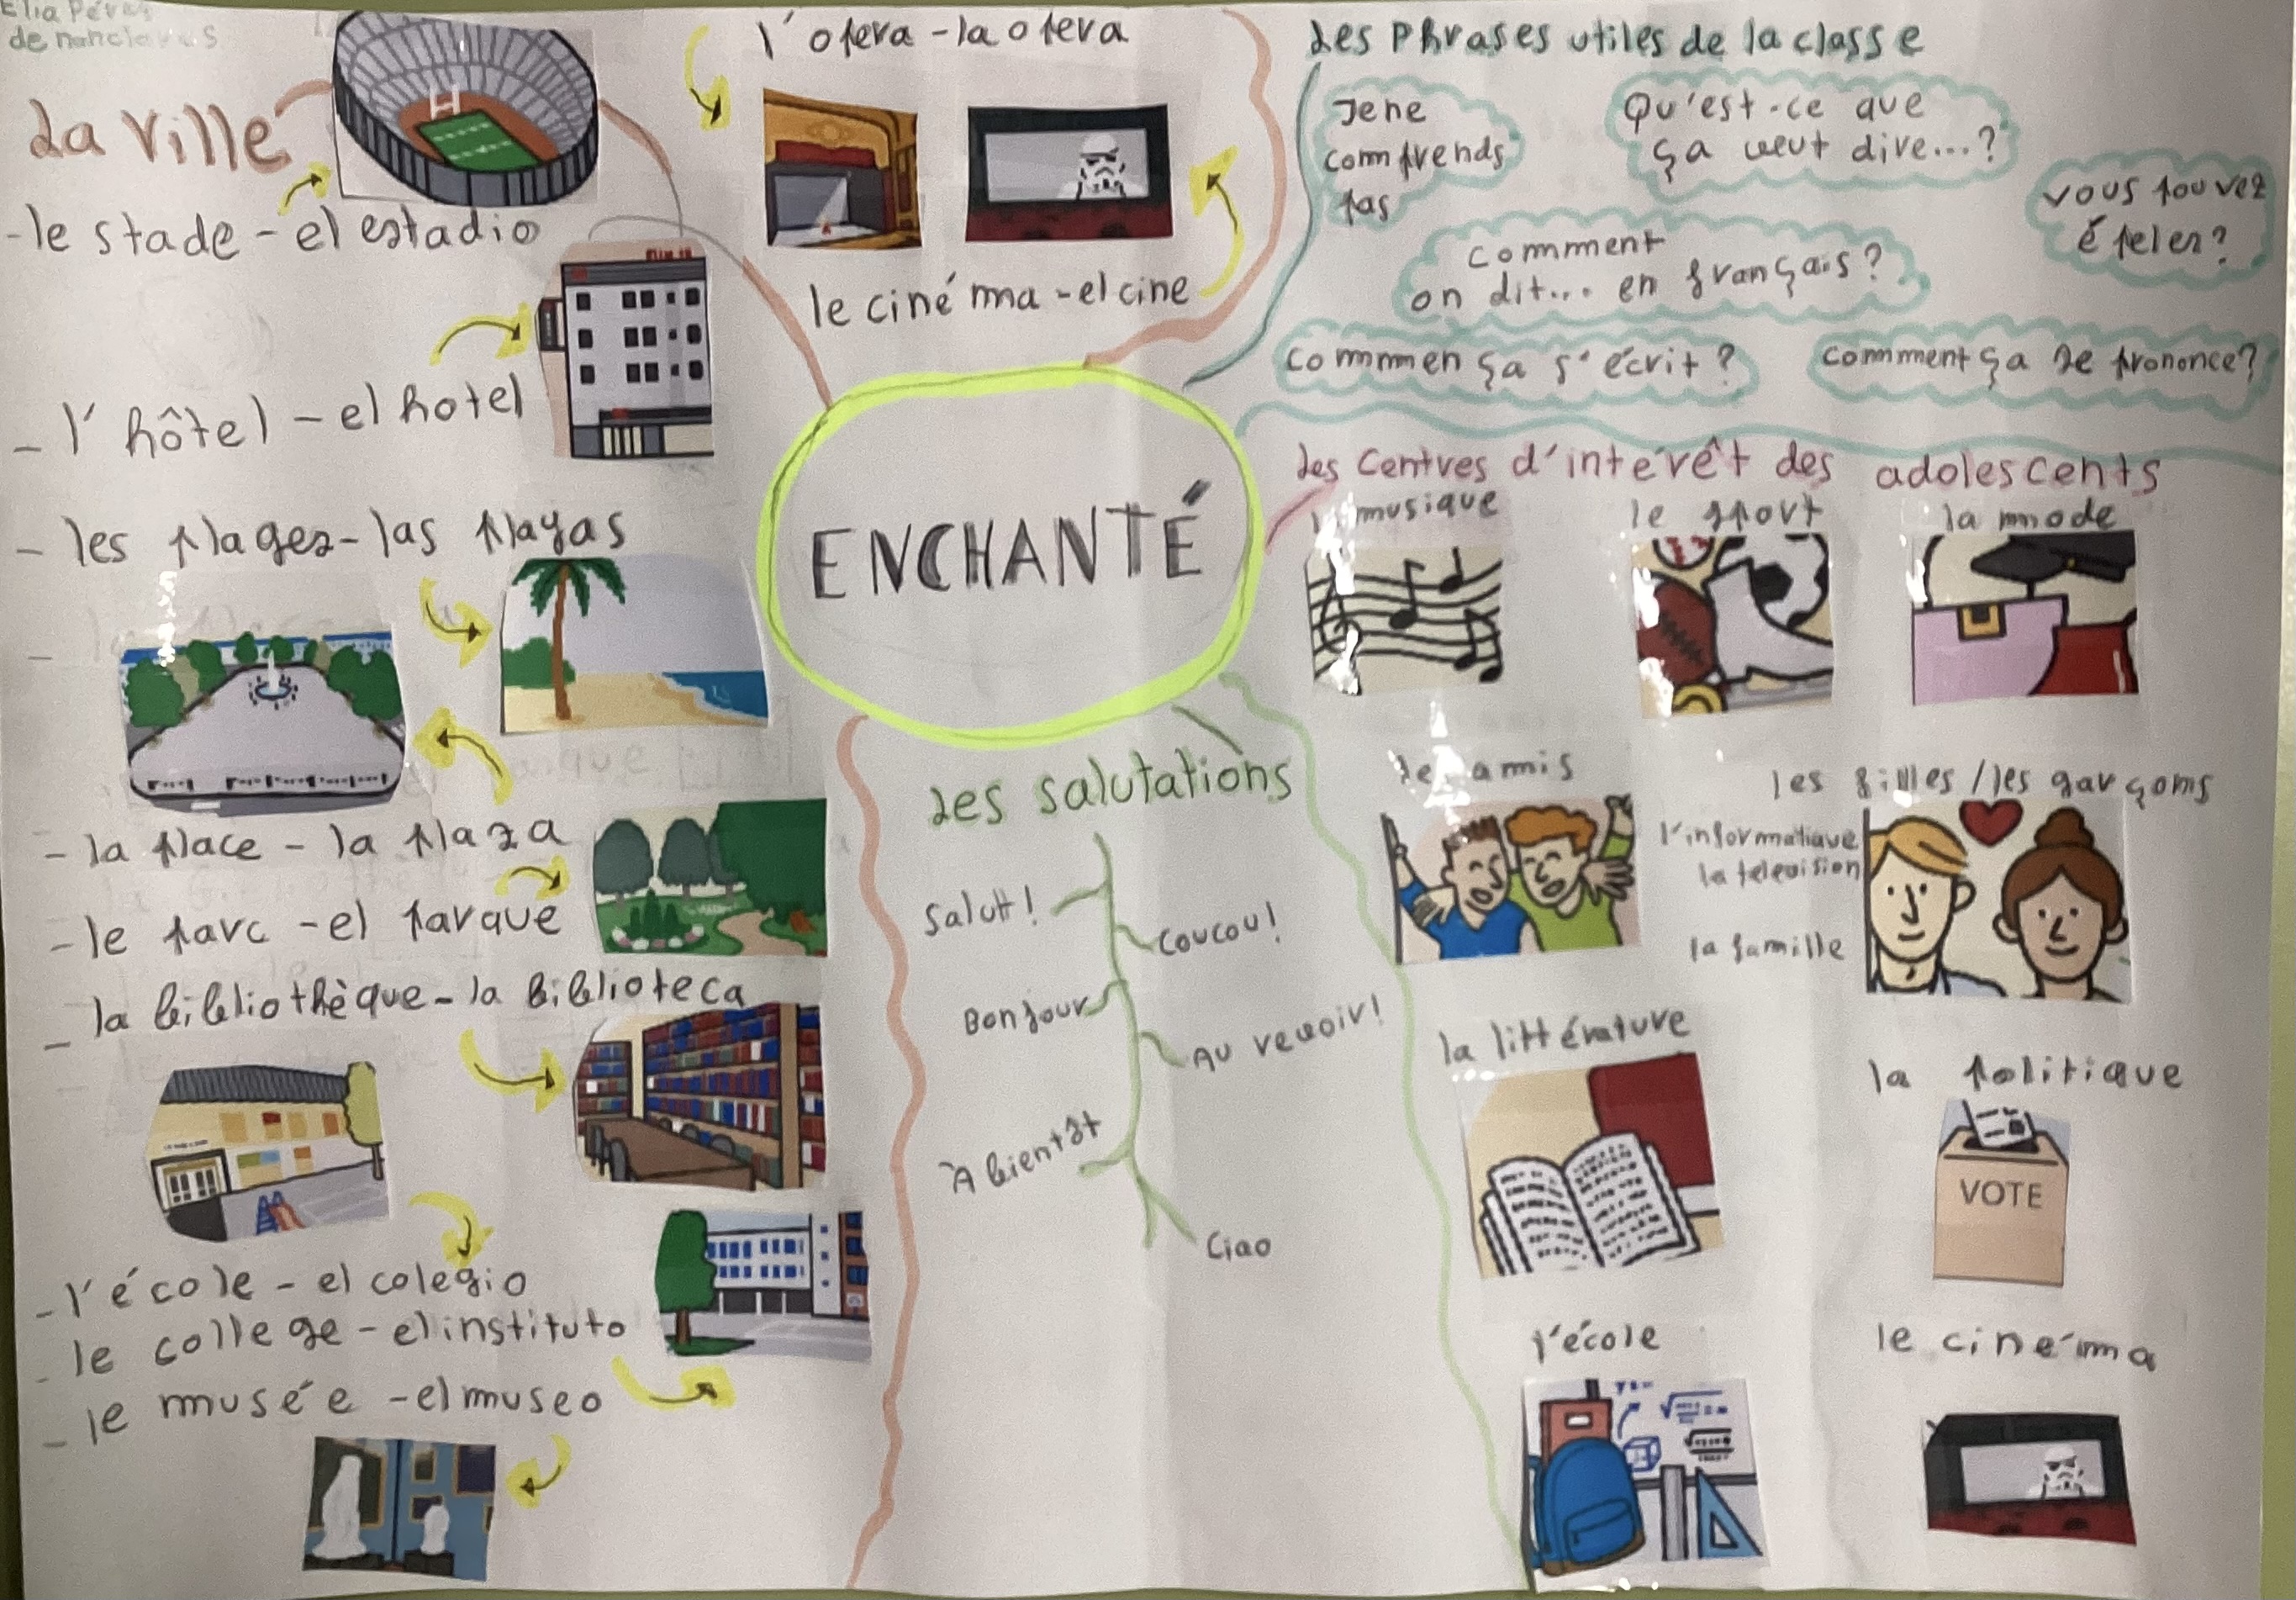 Elia Pérez
de nanclares
La ville
-le stade - el estadio
- l'hôtel - el hotel
- les plages - las playas
- la place - la plaza
- le parc - el parque
- la bibliothèque - la biblioteca
- l'école - el colegio
- le college - el instituto
- le musée - el museo
l'opera - la opera
le cinéma - el cine
ENCHANTÉ
Les salutations
Salut!
Coucou!
Bonjour
Au revoir!
À bientôt
Ciao
Les Phrases utiles de la classe
Je ne
comprends
pas
Qu'est-ce que
ça veut dire...?
vous pouvez
épeler?
Comment
on dit... en français?
Commmen ça s'écrit?
Comment ça se prononce?
Les Centres d'interêt des adolescents
musique
le sport
la mode
les amis
les filles / les garçoms
l'informatique
la television
la famille
la littérature
la politique
VOTE
l'école
le cinéma